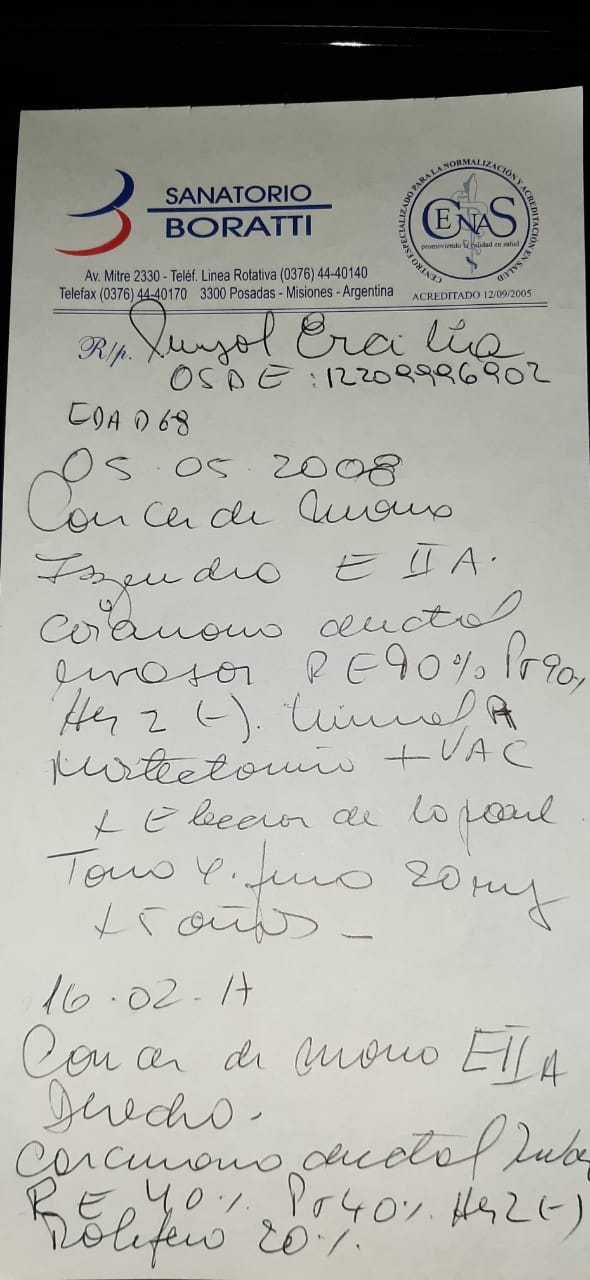 SANATORIO
BORATTI
CENTRO ESPECIALIZADO PARA LA NORMALIZACIÓN Y ACREDITACIÓN EN SALUD
CENAS
promoviendo la calidad en salud
Av. Mitre 2330 - Teléf. Linea Rotativa (0376) 44-40140
Telefax (0376) 44-40170 3300 Posadas - Misiones - Argentina
ACREDITADO 12/09/2005
R/p.
OSDE : 12209996902
EDAD 68
05.05.2008
Cancer de mama
Izquierdo E II A.
carcinoma ductal
invasor RE 90% Pr 90%
Her 2 (-). luminal A
Mastectomia + VAC
+ de la pared
Tamoxifeno 20 mg
x 5 años _
16.02.17
Cancer de mama E II A
Derecho.
Carcinoma ductal
RE 40% Pr 40% Her 2 (-)
20%.